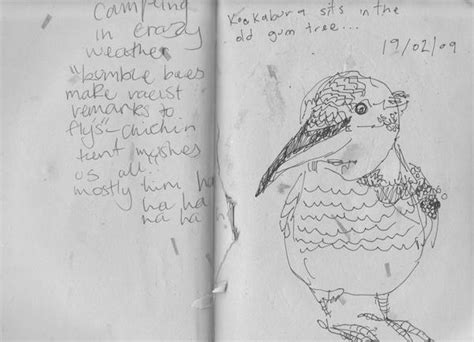 Campling
in crazy
weather
"bomble bees
make racist
remarks to
flys" - chichin
tent mushes
us all..
mostly him ha
ha ha
ha ha h
Kookabura sits in the
old gum tree...
19/02/09